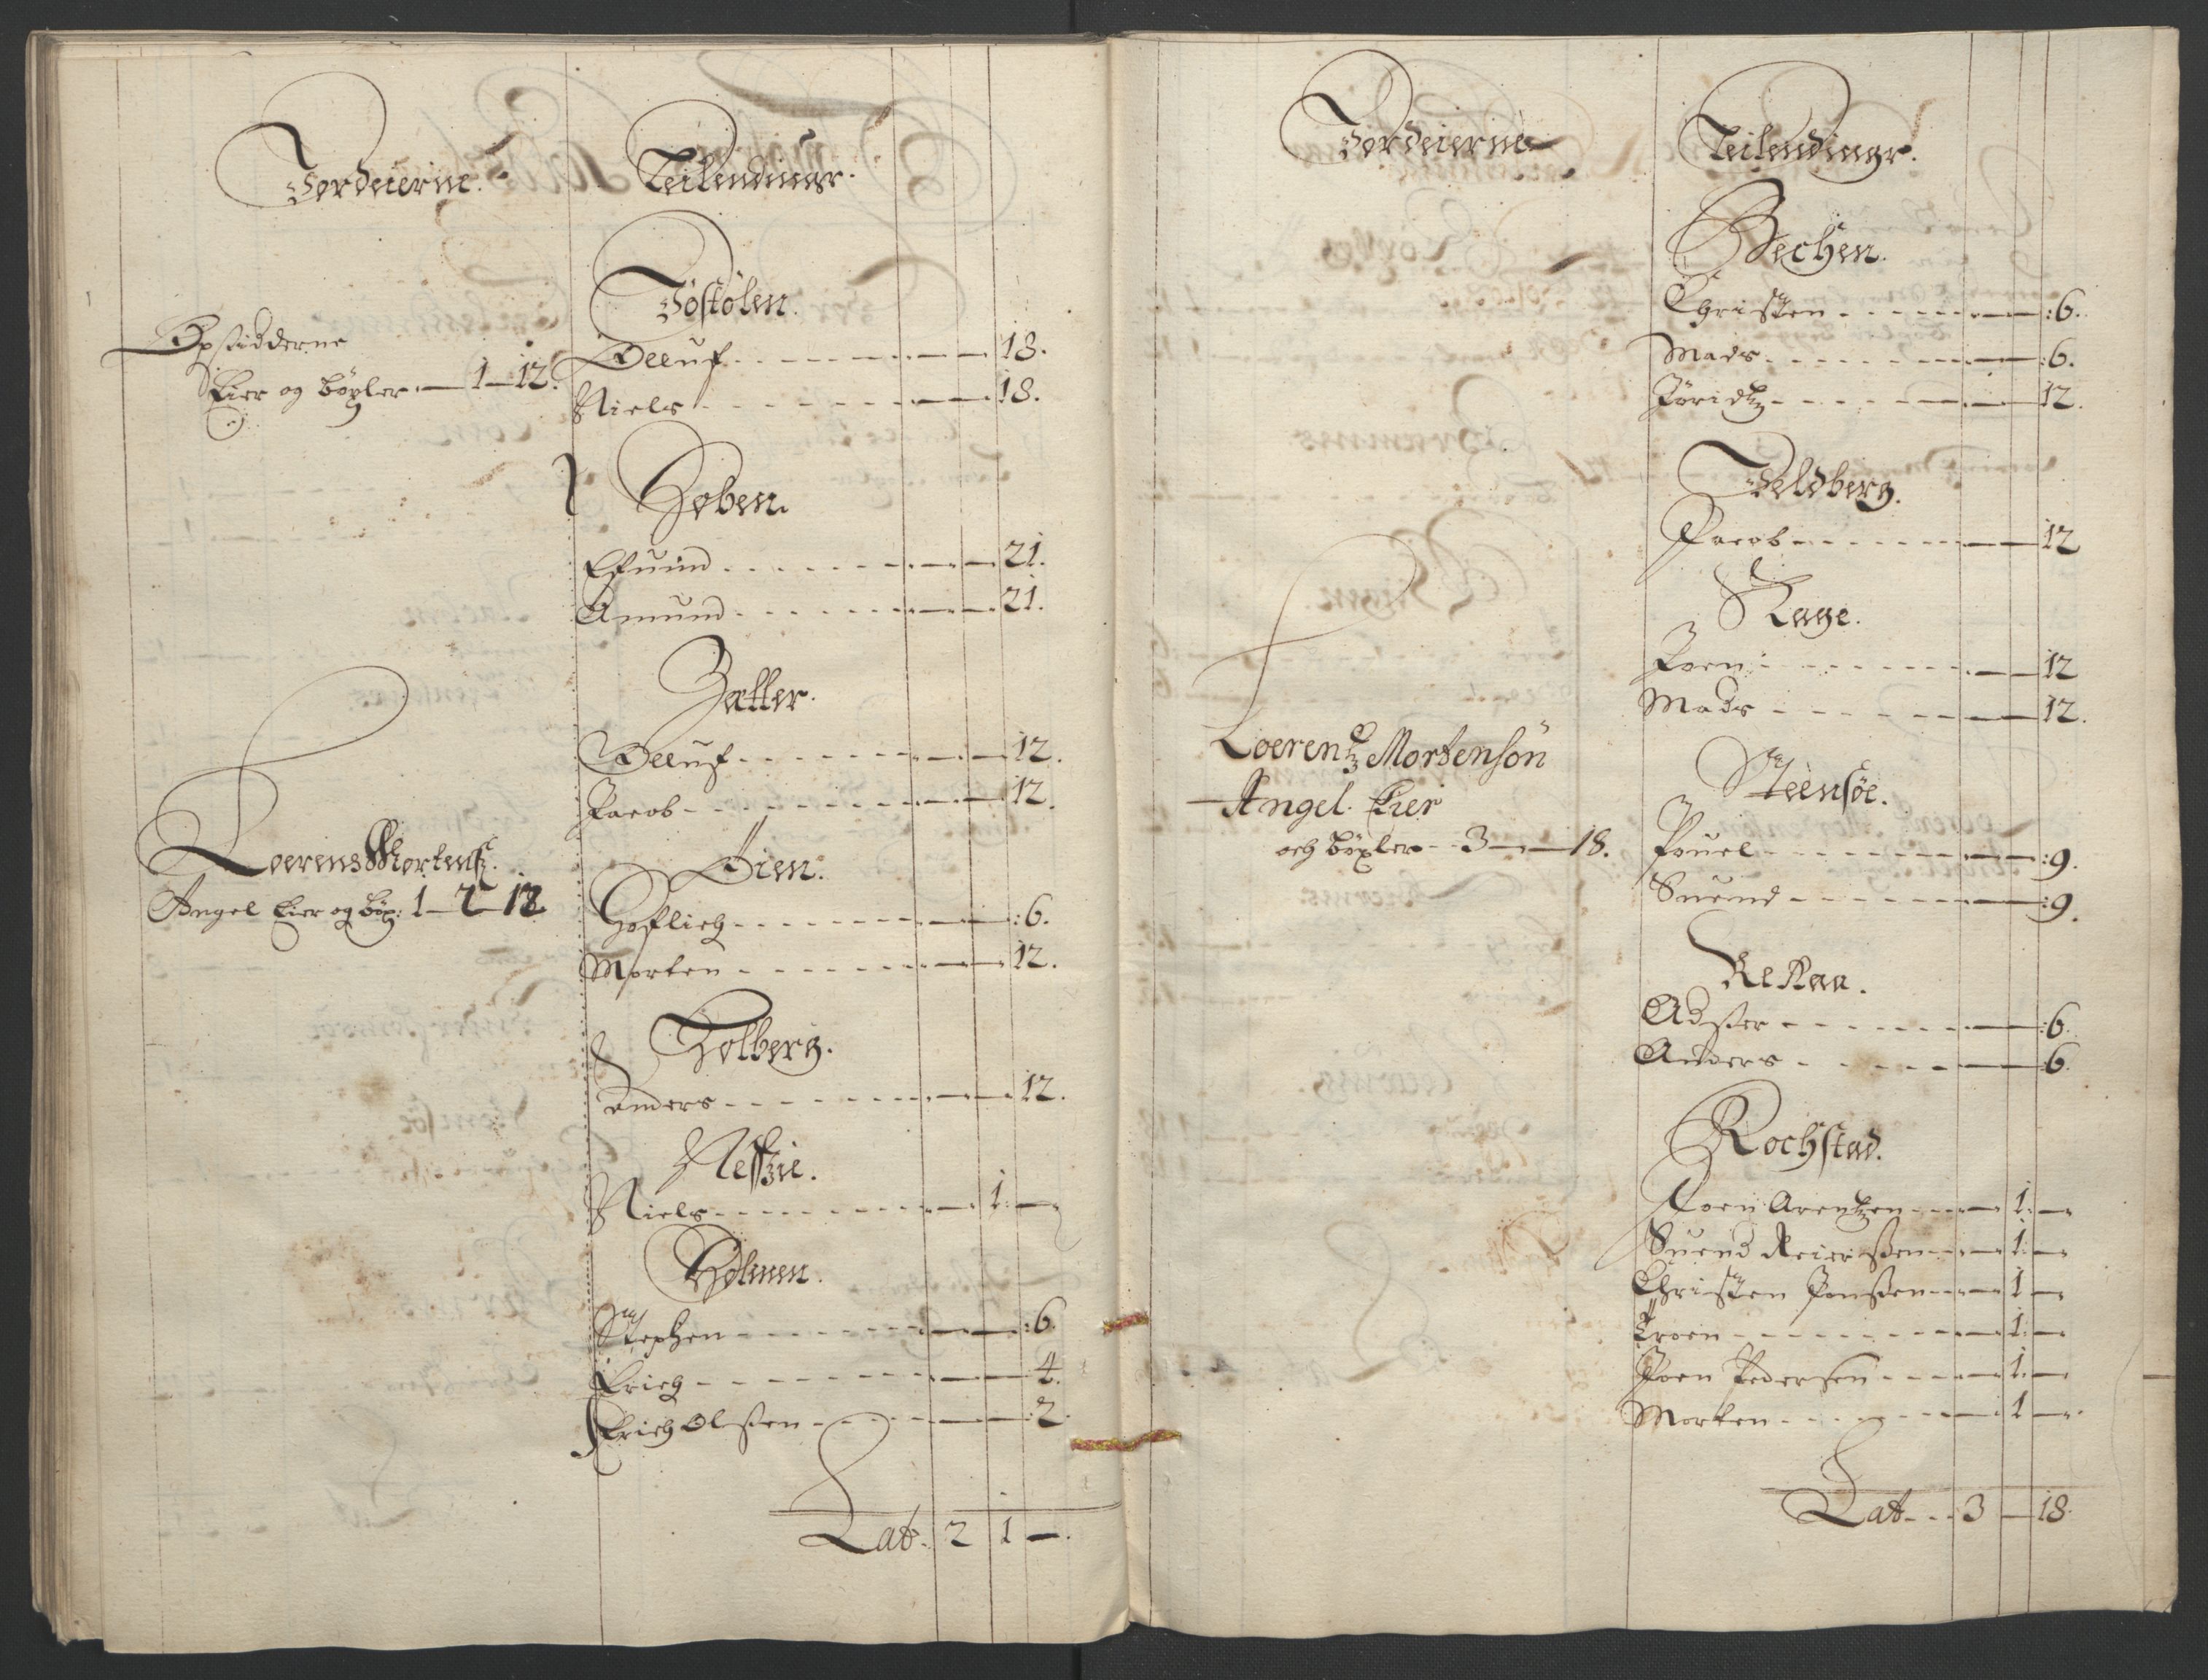 Jordeierne.
Opsidderne
Eier og böxler 1 12.
Loerens Mortens.
Angel Eier og böx: 1 2 18
Leilendinger.
Töstölen.
Oeluf 18.
Niels 18.
Hoben.
Efuind 21.
Amund 21.
Zætter.
Oeluf 12.
Jacob 12.
Öien.
Goftlich :6.
Morten 12.
Holberg.
Anders 12.
Neszie.
Niels 1: —
Holmen.
Stephen :6.
Erich 4.
Erich Olssen :2.
Lat. 2 1 —.
Jordeierne
Loerentz Mortensön
Angel. Eier
och böxler 3 — 18.
Leilendinger.
Bechen.
Christen :6.
Mads :6.
Jörid 12.
Feldberg.
Jacob 12
Kage.
Joen 12
Mads 12.
Steensöe.
Pouel :9.
Suend :9.
Rekaa.
Adser :6.
Anders :6.
Rochstad.
Joen Arentzen 1: —
Suend Reierssen 1: —
Christen Jonssen 1 —
Troen 1: —
Joen Pedersen 1: —
Morten 1 —.
Lat. 3 — 18.